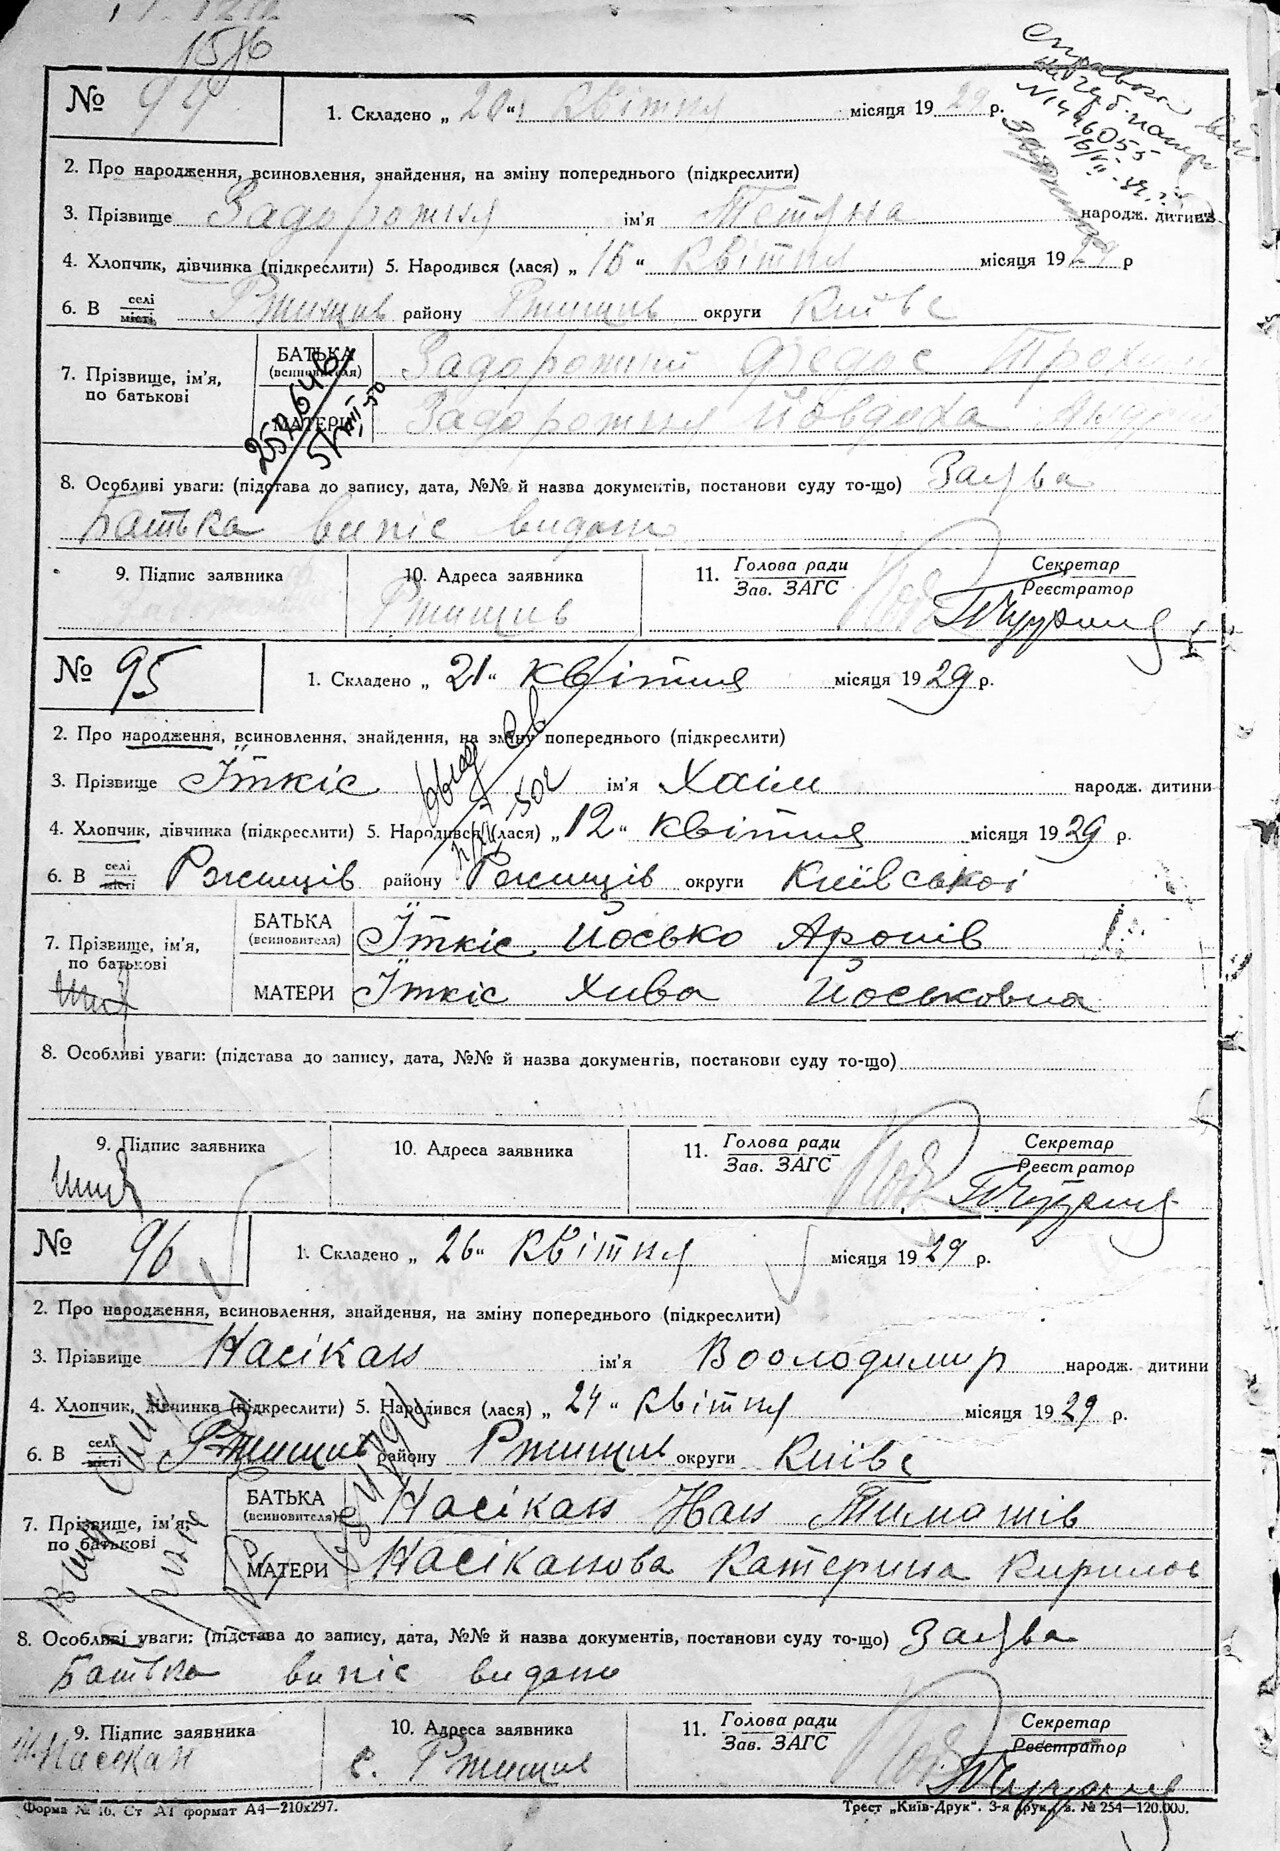 15/6
№ 94
1. Складено „ 20 " квітня місяця 19 29 р.
2. Про народження, всиновлення, знайдення, на зміну попереднього (підкреслити)
3. Прізвище Задорожня ім'я Тетяна народж. дитини
4. Хлопчик, дівчинка (підкреслити) 5. Народився (лася) „ 15 " квітня місяця 19 29 р
6. В селі місті Ржищів району Ржищів округи Київс
7. Прізвище, ім'я, по батькові
БАТЬКА (всиновителя) Задорожний Федос Трохим
МАТЕРИ Задорожня Йовдоха Андрі
8. Особливі уваги: (підстава до запису, дата, №№ й назва документів, постанови суду то-що) Заява
Батька випіс видано
9. Підпис заявника
10. Адреса заявника
Ржищів
11. Голова ради Зав. ЗАГС
Секретар Реєстратор
№ 95
1. Складено „ 21 " квітня місяця 19 29 р.
2. Про народження, всиновлення, знайдення, на зміну попереднього (підкреслити)
3. Прізвище Їткіс ім'я Хаїм народж. дитини
4. Хлопчик, дівчинка (підкреслити) 5. Народився (лася) „ 12 " квітня місяця 19 29 р.
6. В селі місті Ржищів району Ржищів округи Київської
7. Прізвище, ім'я, по батькові
БАТЬКА (всиновителя) Їткіс Йосько Аронів
МАТЕРИ Їткіс Хива Йоськовна
8. Особливі уваги: (підстава до запису, дата, №№ й назва документів, постанови суду то-що)
9. Підпис заявника
10. Адреса заявника
11. Голова ради Зав. ЗАГС
Секретар Реєстратор
№ 96
1. Складено „ 26 " квітня місяця 19 29 р.
2. Про народження, всиновлення, знайдення, на зміну попереднього (підкреслити)
3. Прізвище Насікан ім'я Воолодимир народж. дитини
4. Хлопчик, дівчинка (підкреслити) 5. Народився (лася) „ 24 " квітня місяця 19 29 р.
6. В селі місті Ржищів району Ржищів округи Київс
7. Прізвище, ім'я, по батькові
БАТЬКА (всиновителя) Насікан Йан Тимошів
МАТЕРИ Насіканова Катерина Кирилов
8. Особливі уваги: (підстава до запису, дата, №№ й назва документів, постанови суду то-що) Заява
Батька випіс видано
9. Підпис заявника
Насікан
10. Адреса заявника
с. Ржищів
11. Голова ради Зав. ЗАГС
Секретар Реєстратор
Форма № 16. Ст А1 формат А4—210х297.
Трест „Київ-Друк". 3-я друк. з. № 254—120.000.